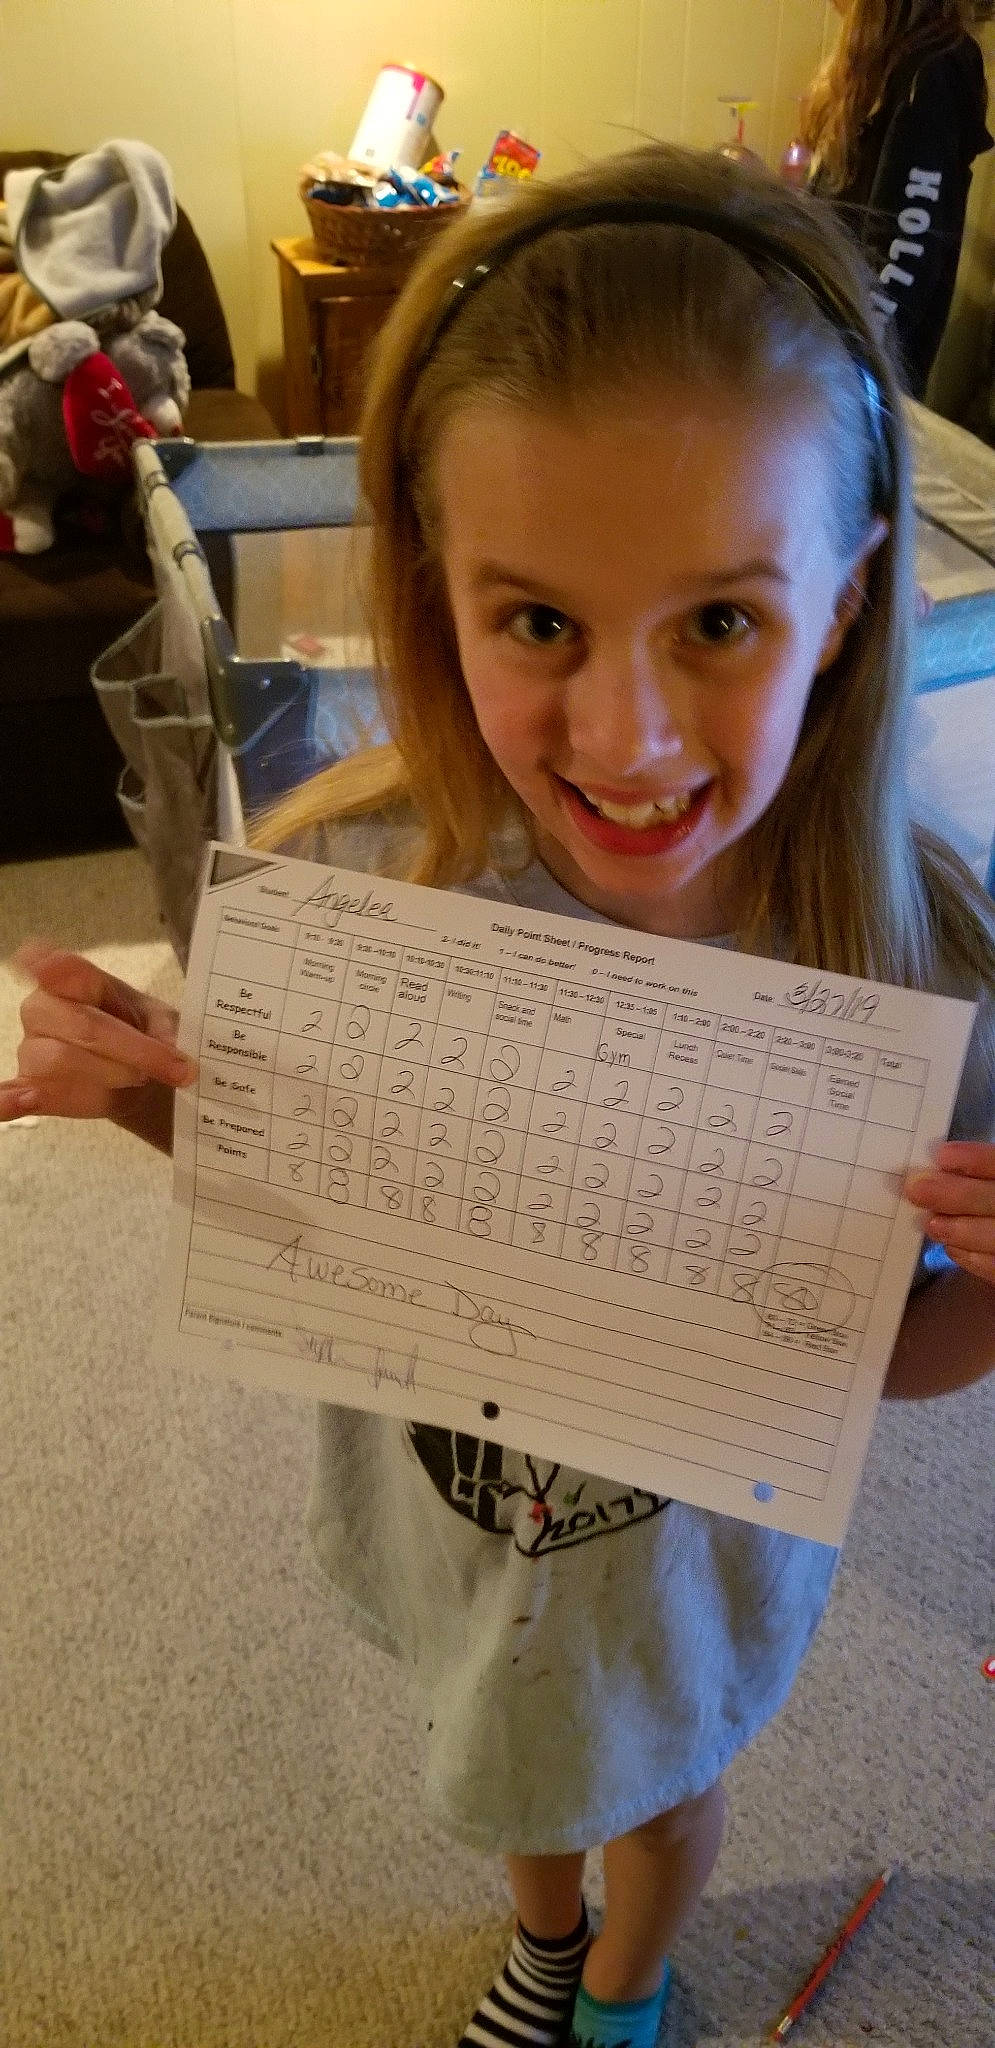 HOLL
Student Angelea
Daily Point Sheet / Progress Report
2- I did it! 1 – I can do better! 0 – I need to work on this
Date: 3/27/19
Behavioral Goals 9:10 - 9:30 9:30 –10:10 10:10-10:30 10:30-11:10 11:10 – 11:30 11:30 – 12:30 12:35 – 1:05 1:10 – 2:00 2:00 – 2:20 2:20 – 3:00 3:00-3:20 Total
Morning Warm-up Morning circle Read aloud Writing Snack and social time Math Special Gym Lunch Recess Quiet Time Social Skills Earned Social Time
Be Respectful 2 2 2 2 2 2 2 2 2 2
Be Responsible 2 2 2 2 2 2 2 2 2 2
Be Safe 2 2 2 2 2 2 2 2 2 2
Be Prepared 2 2 2 2 2 2 2 2 2 2
Points 8 8 8 8 8 8 8 8 8 8 80
Awesome Day
Parent Signature / comments
2017